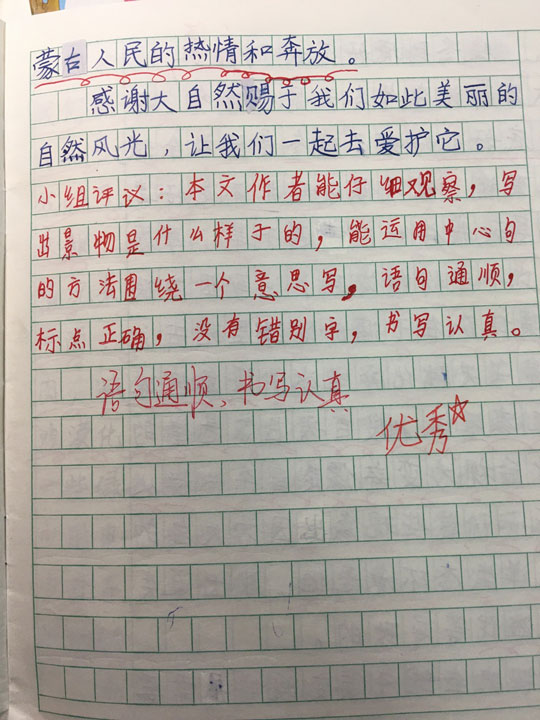 蒙古人民的热情和奔放。
感谢大自然赐予我们如此美丽的
自然风光，让我们一起去爱护它。
小组评议：本文作者能仔细观察，写
出景物是什么样子的，能运用中心句
的方法围绕一个意思写。语句通顺，
标点正确，没有错别字，书写认真。
语句通顺、书写认真
优秀☆